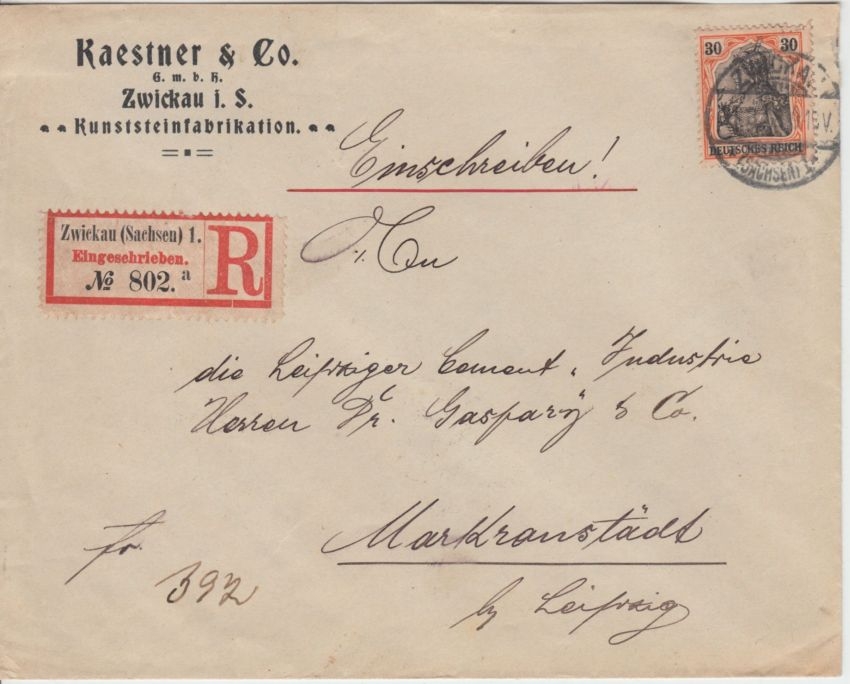 Kaestner & Co.
G. m. b. H.
Zwickau i. S.
Kunststeinfabrikation.
30 30
DEUTSCHES REICH
ZWICKAU
(SACHSEN)
Einschreiben!
Zwickau (Sachsen) 1.
Eingeschrieben.
№ 802. a
R
An
die Leipziger Cement-Industrie
Herren Dr. Gaspary & Co.
Markranstädt
by Leipzig
fr.
392